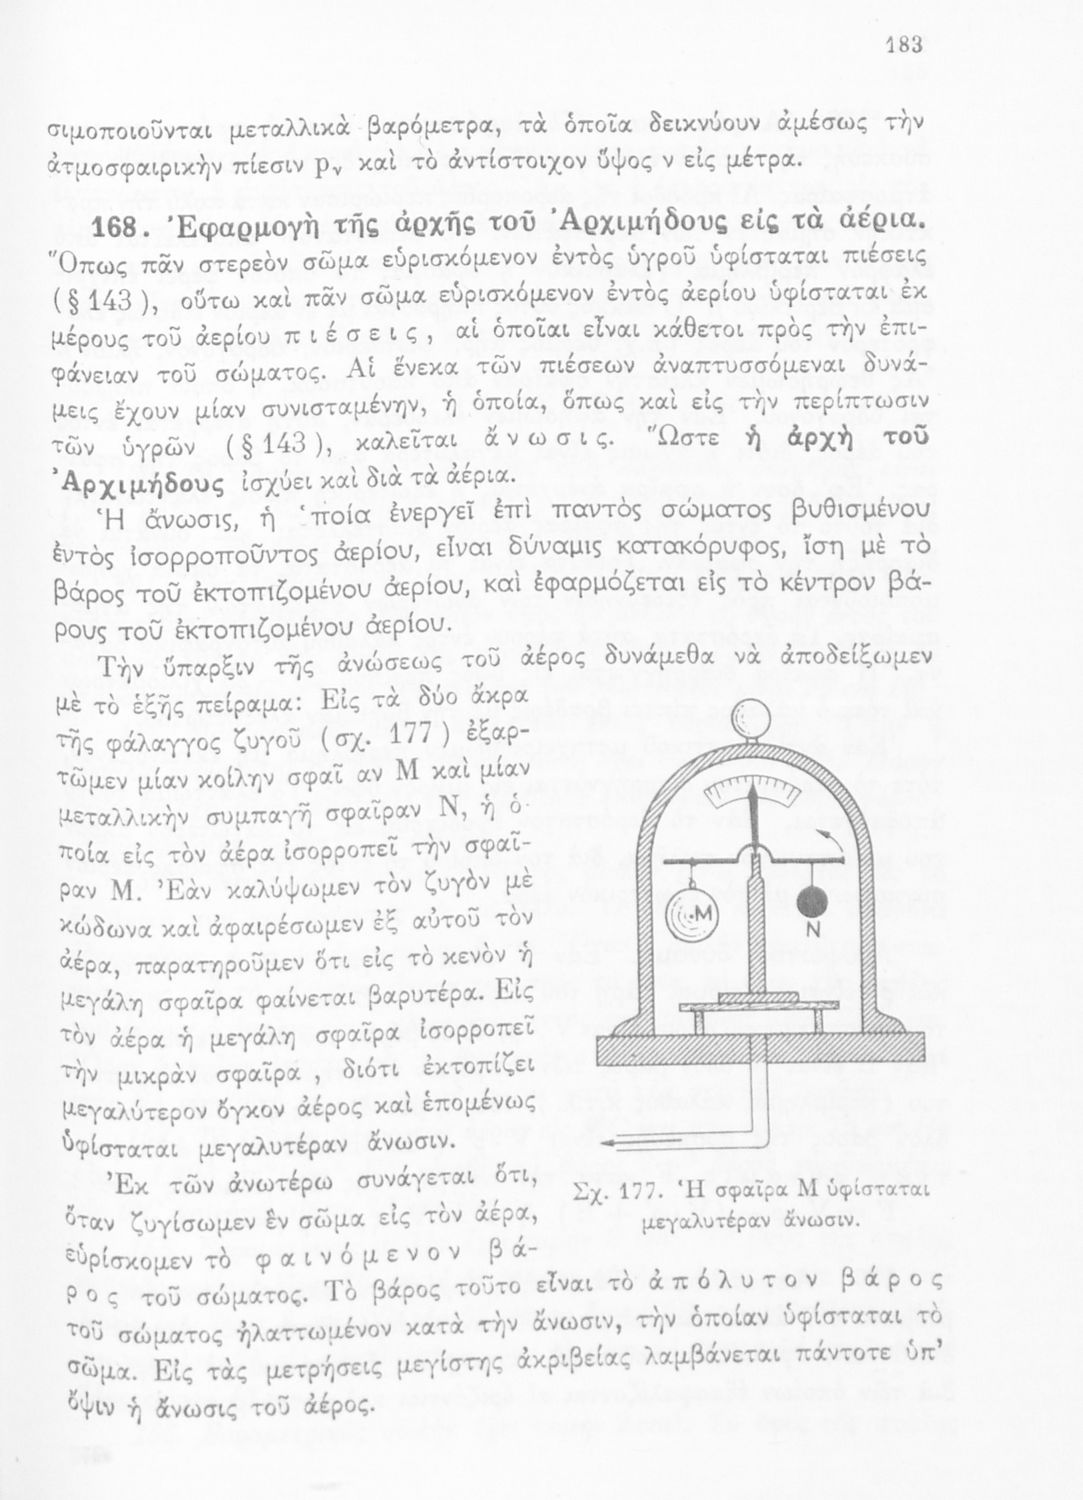 183
σιμοποιοῦνται μεταλλικὰ βαρόμετρα, τὰ ὁποῖα δεικνύουν ἀμέσως τὴν
ἀτμοσφαιρικὴν πίεσιν pᵥ καὶ τὸ ἀντίστοιχον ὕψος ν εἰς μέτρα.
168. Ἐφαρμογὴ τῆς ἀρχῆς τοῦ Ἀρχιμήδους εἰς τὰ ἀέρια.
Ὅπως πᾶν στερεὸν σῶμα εὑρισκόμενον ἐντὸς ὑγροῦ ὑφίσταται πιέσεις
(§ 143), οὕτω καὶ πᾶν σῶμα εὑρισκόμενον ἐντὸς ἀερίου ὑφίσταται ἐκ
μέρους τοῦ ἀερίου πιέσεις, αἱ ὁποῖαι εἶναι κάθετοι πρὸς τὴν ἐπι-
φάνειαν τοῦ σώματος. Αἱ ἕνεκα τῶν πιέσεων ἀναπτυσσόμεναι δυνά-
μεις ἔχουν μίαν συνισταμένην, ἡ ὁποία, ὅπως καὶ εἰς τὴν περίπτωσιν
τῶν ὑγρῶν (§ 143), καλεῖται ἄνωσις. Ὥστε ἡ ἀρχὴ τοῦ
Ἀρχιμήδους ἰσχύει καὶ διὰ τὰ ἀέρια.
Ἡ ἄνωσις, ἡ ὁποία ἐνεργεῖ ἐπὶ παντὸς σώματος βυθισμένου
ἐντὸς ἰσορροποῦντος ἀερίου, εἶναι δύναμις κατακόρυφος, ἴση μὲ τὸ
βάρος τοῦ ἐκτοπιζομένου ἀερίου, καὶ ἐφαρμόζεται εἰς τὸ κέντρον βά-
ρους τοῦ ἐκτοπιζομένου ἀερίου.
Τὴν ὕπαρξιν τῆς ἀνώσεως τοῦ ἀέρος δυνάμεθα νὰ ἀποδείξωμεν
μὲ τὸ ἑξῆς πείραμα: Εἰς τὰ δύο ἄκρα
τῆς φάλαγγος ζυγοῦ (σχ. 177) ἐξαρ-
τῶμεν μίαν κοίλην σφαῖραν Μ καὶ μίαν
μεταλλικὴν συμπαγῆ σφαῖραν Ν, ἡ ὁ-
ποία εἰς τὸν ἀέρα ἰσορροπεῖ τὴν σφαῖ-
ραν Μ. Ἐὰν καλύψωμεν τὸν ζυγὸν μὲ
κώδωνα καὶ ἀφαιρέσωμεν ἐξ αὐτοῦ τὸν
ἀέρα, παρατηροῦμεν ὅτι εἰς τὸ κενὸν ἡ
μεγάλη σφαῖρα φαίνεται βαρυτέρα. Εἰς
τὸν ἀέρα ἡ μεγάλη σφαῖρα ἰσορροπεῖ
τὴν μικρὰν σφαῖρα , διότι ἐκτοπίζει
μεγαλύτερον ὄγκον ἀέρος καὶ ἑπομένως
ὑφίσταται μεγαλυτέραν ἄνωσιν.
Μ
Ν
Σχ. 177. Ἡ σφαῖρα Μ ὑφίσταται
μεγαλυτέραν ἄνωσιν.
Ἐκ τῶν ἀνωτέρω συνάγεται ὅτι,
ὅταν ζυγίσωμεν ἓν σῶμα εἰς τὸν ἀέρα,
εὑρίσκομεν τὸ φαινόμενον βά-
ρος τοῦ σώματος. Τὸ βάρος τοῦτο εἶναι τὸ ἀπόλυτον βάρος
τοῦ σώματος ἠλαττωμένον κατὰ τὴν ἄνωσιν, τὴν ὁποίαν ὑφίσταται τὸ
σῶμα. Εἰς τὰς μετρήσεις μεγίστης ἀκριβείας λαμβάνεται πάντοτε ὑπ’
ὄψιν ἡ ἄνωσις τοῦ ἀέρος.